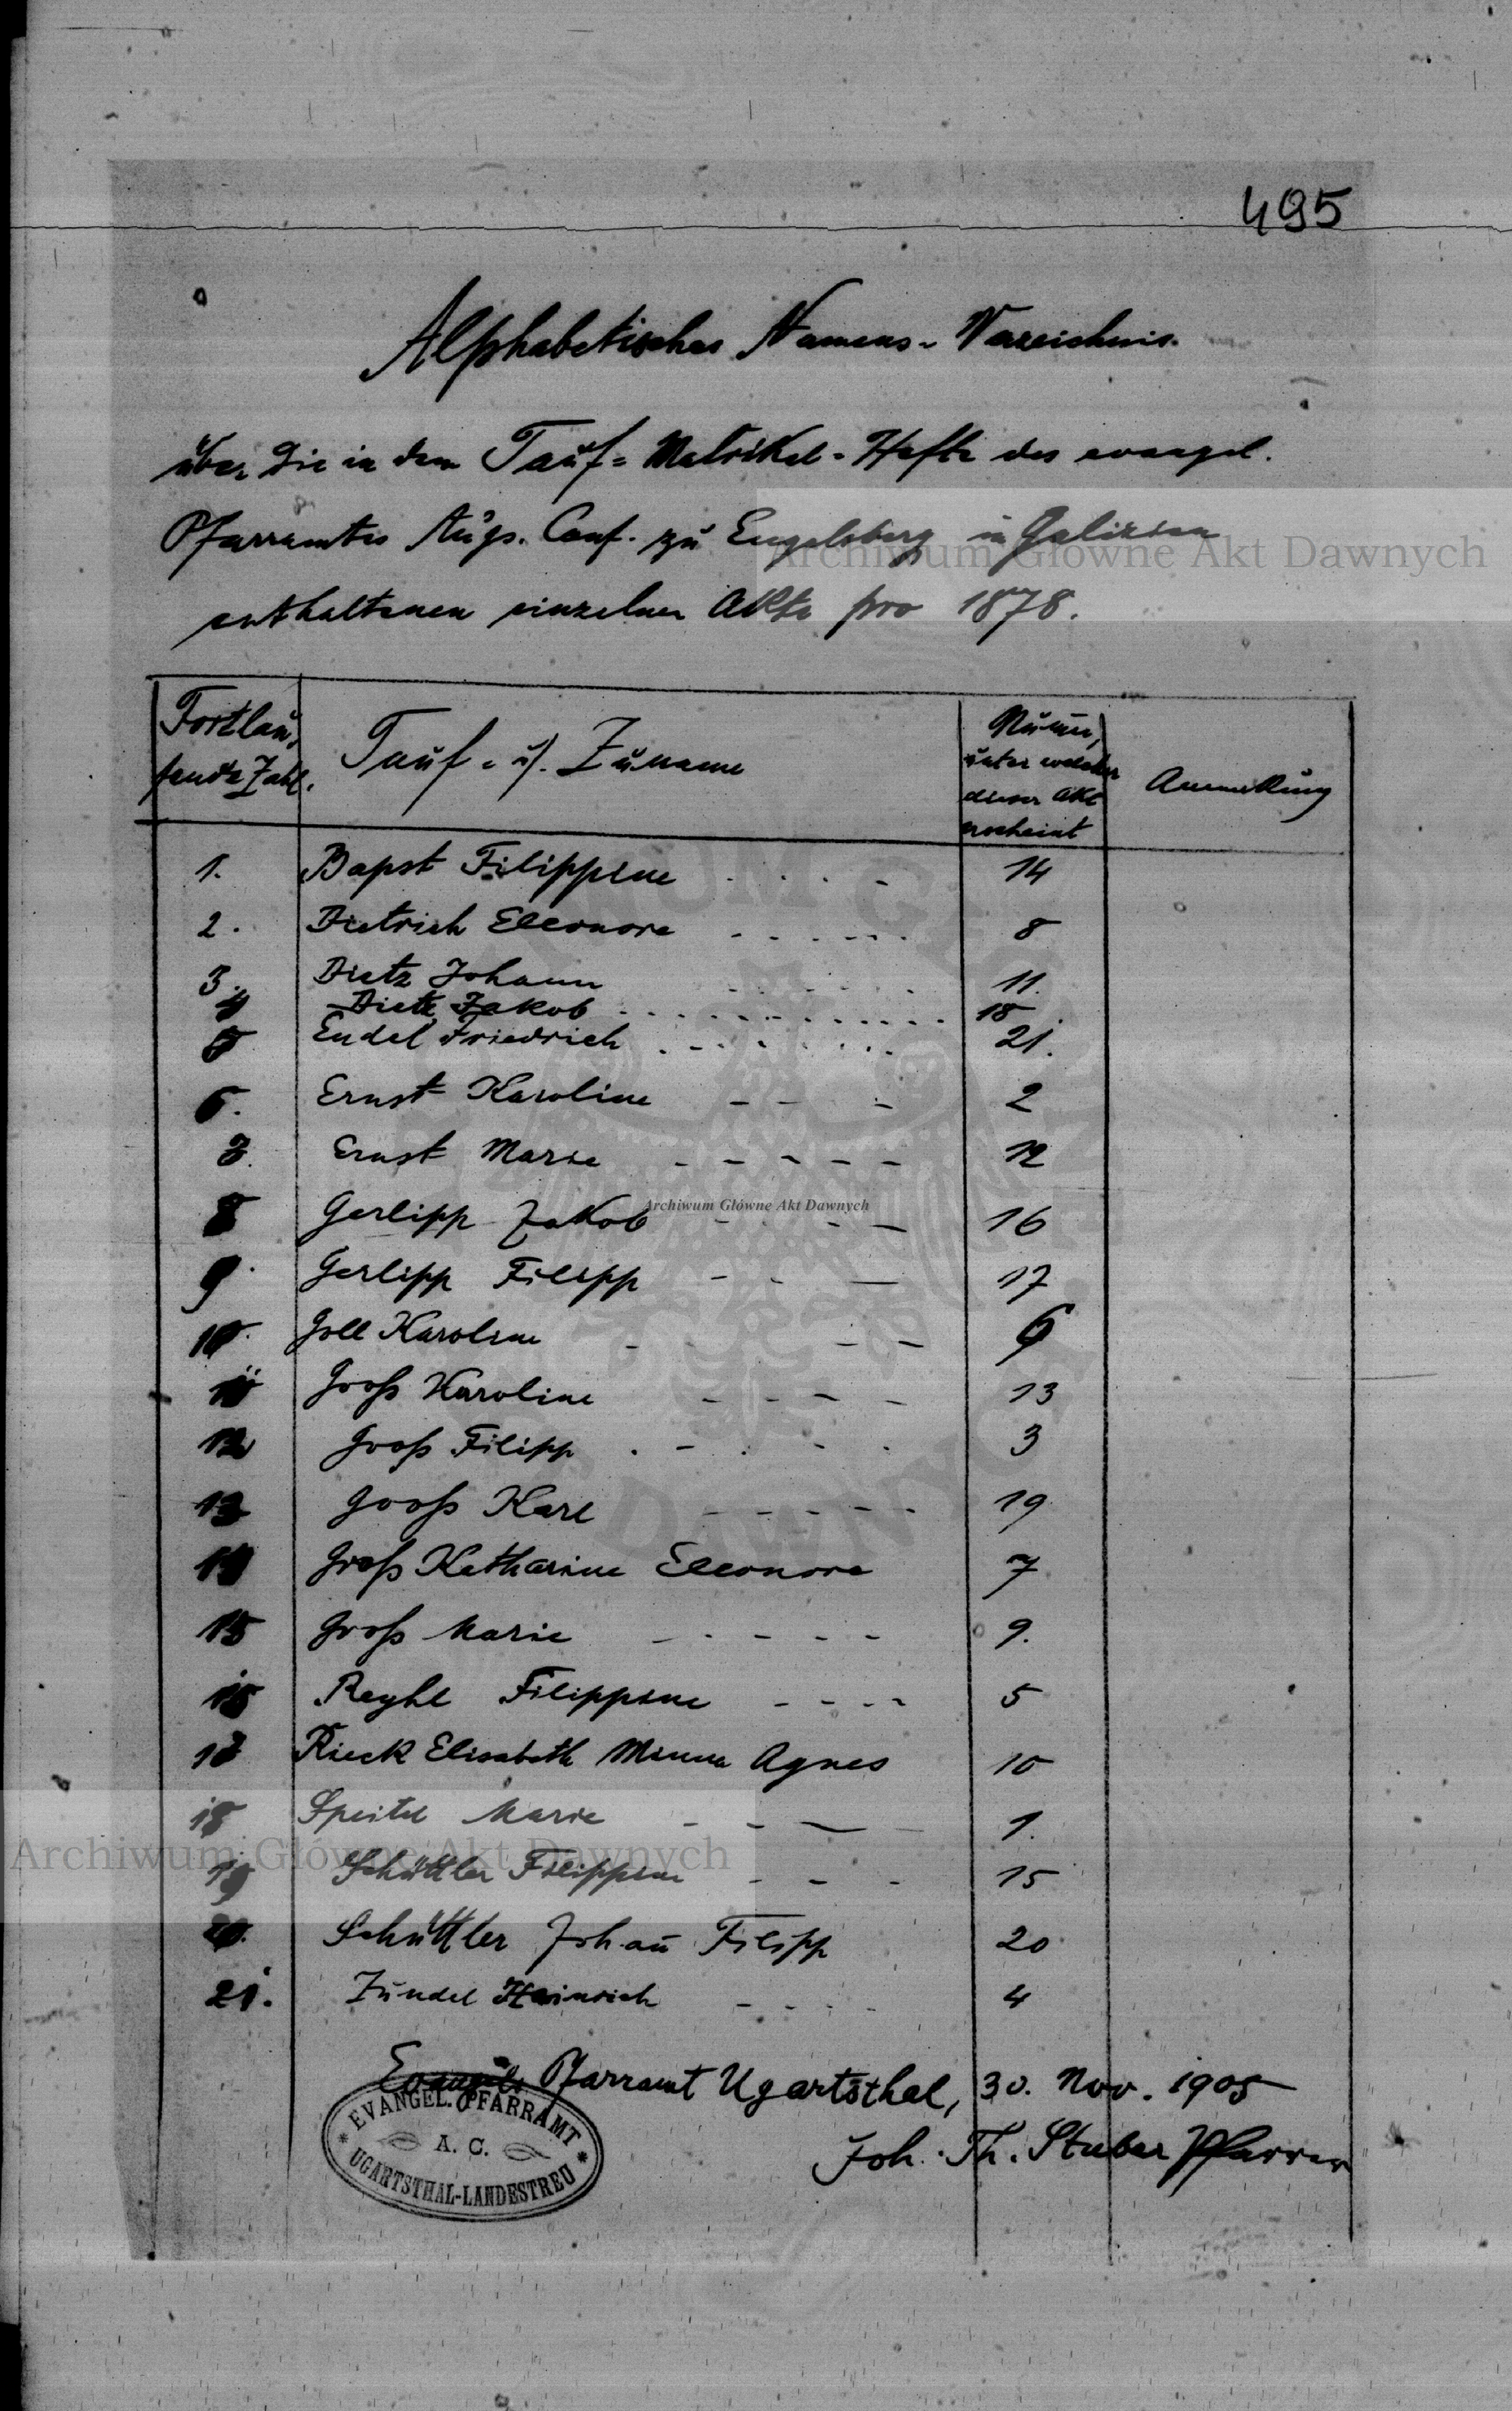 495
Alphabetisches Namens-Verzeichnis.
über die in dem Tauf-Matrikel-Hefte des evangel.
Pfarramtes Augs. Conf. zu Engelsberg in Galizien
enthaltenen einzelnen Akte pro 1878.
Fortlaufende Zahl. Tauf- u. Zuname Numer, unter welcher dieser Akt erscheint Anmerkung
1. Bapst Filippine 14
2. Dietrich Eleonore 8
3. Dietz Johann 11.
4 Dietz Jakob 18
5 Endel Friedrich 21.
6. Ernst Karoline 2
7. Ernst Marie 12
8 Gerlipp Jakob 16
9. Gerlipp Filipp 17
10. Goll Karoline 6
11 Groß Karoline 13
12 Groß Filipp 3
13 Groß Karl 19
14 Groß Katharine Eleonore 7
15 Groß Marie 9.
16 Reyhl Filippine 5
17 Rieck Elisabeth Minna Agnes 10
18 Speitel Marie 1.
19 Schüttler Filippine 15
20. Schüttler Johañ Filipp 20
21. Zundel Heinrich 4
Evangel. Pfarramt Ugartsthal, 30. Nov. 1905
Joh. Th. Stuber Pfarrer
EVANGEL. PFARRAMT
A. C.
UGARTSTHAL-LANDESTREU
Archiwum Główne Akt Dawnych
Archiwum Główne Akt Dawnych
Archiwum Główne Akt Dawnych